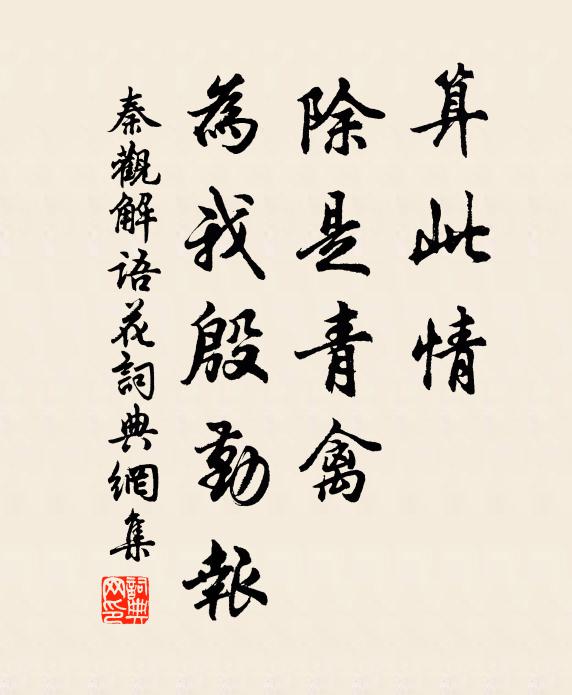 算此情
除是青禽
為我殷勤報
秦觀解語花詞典網集
詞典網印